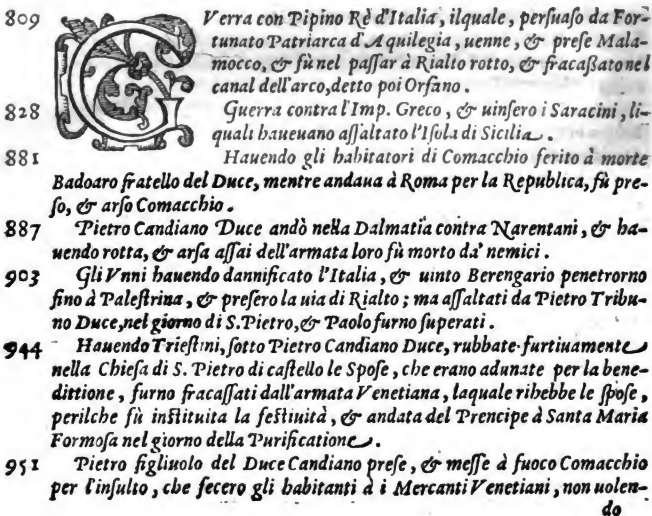 809 GVerra con Pipino Rè d'Italia, ilquale, persuaso da For-
tunato Patriarca d'Aquilegia, uenne, & prese Mala-
mocco, & fù nel passar à Rialto rotto, & fracassato nel
canal dell'arco, detto poi Orfano.
828 Guerra contra l'Imp. Greco, & uinsero i Saracini, li-
quali haueuano assaltato l'Isola di Sicilia.
881 Hauendo gli habitatori di Comacchio ferito à morte
Badoaro fratello del Duce, mentre andaua à Roma per la Republica, fù pre-
so, & arso Comacchio.
887 Pietro Candiano Duce andò nella Dalmatia contra Narentani, & ha-
uendo rotta, & arsa assai dell'armata loro fù morto da' nemici.
903 Gli Vnni hauendo dannificato l'Italia, & uinto Berengario penetrorno
fino à Palestrina, & presero la uia di Rialto; ma assaltati da Pietro Tribu-
no Duce, nel giorno di S. Pietro, & Paolo furno superati.
944 Hauendo Triestini, sotto Pietro Candiano Duce, rubbate furtiuamente
nella Chiesa di S. Pietro di castello le Spose, che erano adunate per la bene-
dittione, furno fracassati dall'armata Venetiana, laquale rihebbe le spose,
perilche fù instituita la festiuità, & andata del Prencipe à Santa Maria
Formosa nel giorno della Purificatione.
951 Pietro figliuolo del Duce Candiano prese, & messe à fuoco Comacchio
per l'insulto, che fecero gli habitanti à i Mercanti Venetiani, non uolen-
do